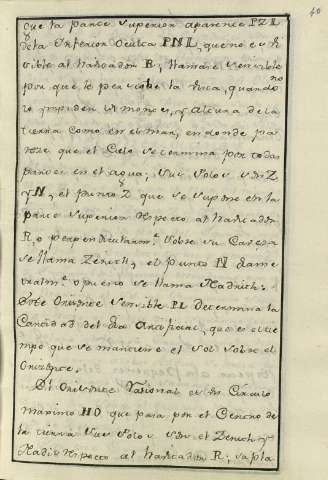 40
que la parte superior aparente PZL
de la Inferior Oculta PNL, que no es vi-
sible al Navegador R; llamase sensible
por que le percibe la vista, quando no
lo impiden los montes, y altura de la
tierra como en el mar, en donde pa-
rece que el Cielo se termina por todas
partes en el agua; sus Polos son Z
y N, el punto Z que se supone en la
parte superior respecto al Navegador
R, o perpendicularm.te sobre su Caveza
se llama Zenith, y el punto N diame-
tralm.te opuesto se llama Nadir.
Este Orizonte sensible PL determina la
Cantidad del dia Artificial, que es el tiem-
po que se mantiene el sol sobre el
Orizonte.
El Orizonte Racional es un Circulo
maximo HO que pasa por el Centro de
la tierra sus Polos son el Zenith y
Nadir respecto al Navegador R;